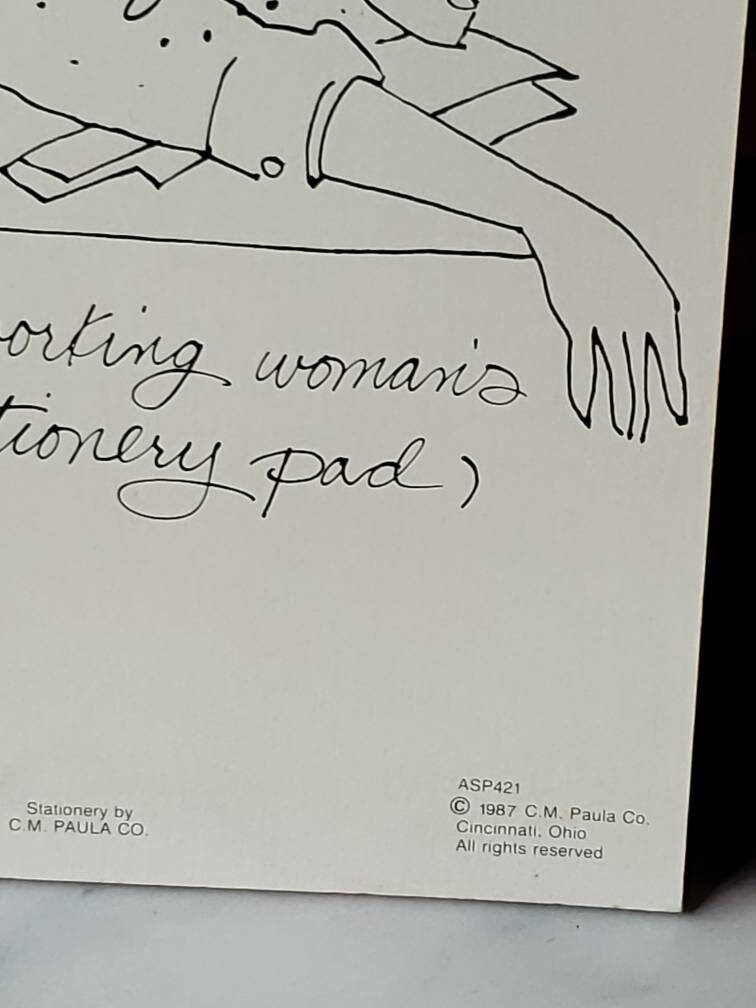 orking woman's
tionery pad)
Stationery by
C.M. PAULA CO.
ASP421
© 1987 C.M. Paula Co.
Cincinnati, Ohio
All rights reserved